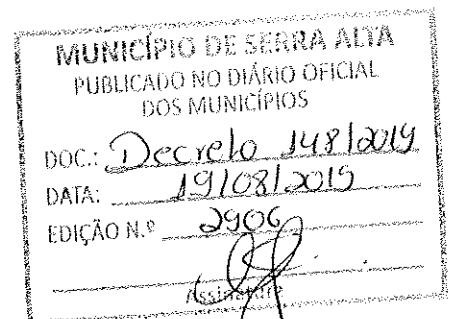 MUNICÍPIO DE SERRA ALTA
PUBLICADO NO DIÁRIO OFICIAL
DOS MUNICÍPIOS
DOC.: Decreto 148/2019
DATA: 19/08/2019
EDIÇÃO N.º 2906
Assinatura